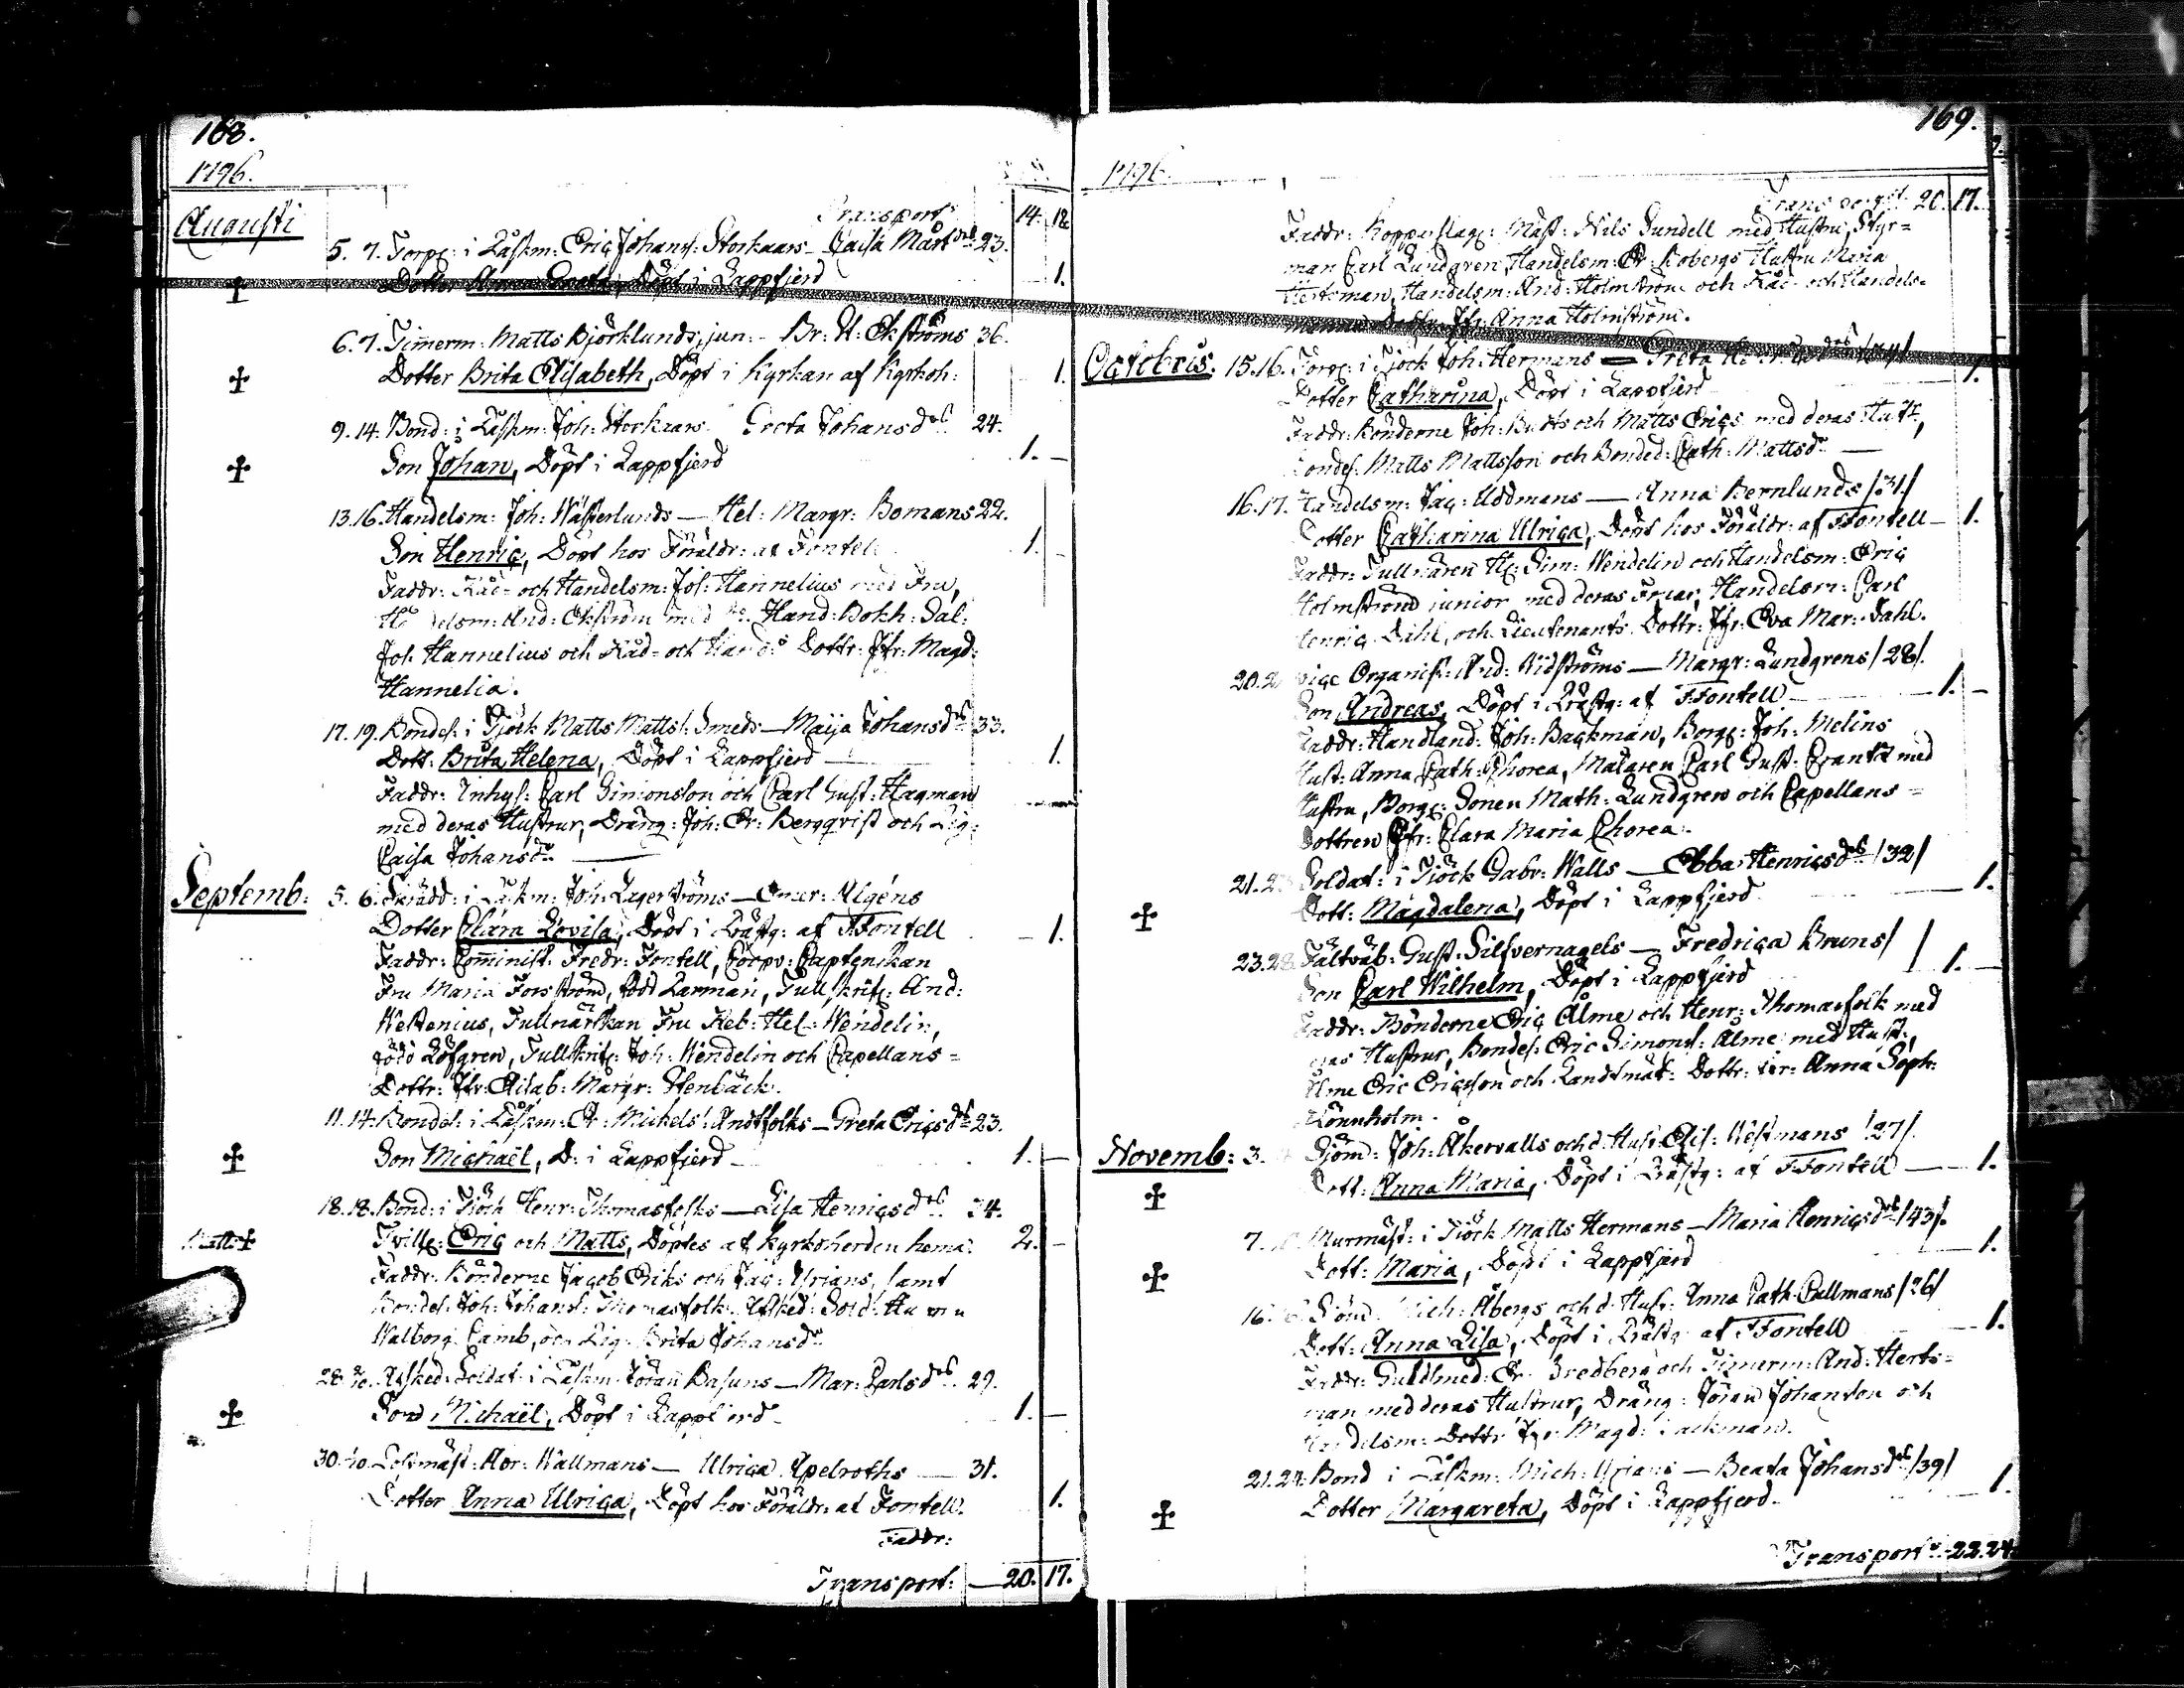 168.
1796.
Augusti
Transport 14. 12
5. 7. Torp: i Låskm: Eric Johans: Storkaars - Caisa Mårtsdrs 23.
Dotter Anna Greta, Döpt i Lappfjerd 1.
6. 7. Timmerm: Matts Björklunds, jun: - Br: H: Ekströms 36.
Dotter Brita Elisabeth, Döpt i Kyrkan af Kyrkoh: 1.
9. 14. Bond: i Låskm: Joh: Storkaars Greta Johansdrs 24.
Son Johan, Döpt i Lappfjerd 1. -
13. 16. Handelsm: Joh: Wästerlunds — Hel: Margr: Bomans 22.
Son Henric, Döpt hos Föräldr: af Fontell 1. -
Faddr: Råd- och Handelsm: Joh: Hannelius med Fru,
Handelsm: And: Ekström med do Hand: Bokh: Sal:
Joh Hannelius och Råd- och Hands Dottr: Jfr: Magd:
Hannelia.
17. 19. Bondes: i Tjöck Matts Matts: Smeds — Maija Johansdrs 33.
Dott: Brita Helena, Döpt i Lappfjerd — 1.
Faddr: Inhys: Carl Simonsson och Carl Gust: Hagman
med deras Hustrur, Dräng: Joh: Er: Bergqvist och Pig:
Caisa Johansdr —
Septemb: 5. 6. Skrädd: i Låskm: Joh: Lagerströms — Algéns
Dotter Clara Lovisa, Döpt i Prästg: af FFontell - 1.
Faddr: Comminist: Fredr: Fontell, Corpr: Captenskan
Fru Maria Forsström, född Carman, Tullskrif: And:
Westenius, Tullnärskan Fru Reb: Hel: Wendelin,
född Löfgren, Tullskrif: Joh: Wendelin och Capellans-
Dottr: Jfr: Elisab: Margr: Stenbäck.
11. 14. Bondes: i Låskm: Er: Mickels: Andtfolks — Greta Ericsdr 23.
Son Michaël, D: i Lappfjerd - 1. -
18. 18. Bond: i Tjöck Henr: Thomasfolks — Lisa Henricsdrs 34.
Matts Tvill: Eric och Matts, Döptes af Kyrkoherden hema: 2. -
Faddr: Bönderne Jacob Eriks och Jac: Yrjans, samt
Bondes: Joh: Johans: Thomasfolk: Afsked: Sold: Hustru
Walborg Camb, och Pig: Brita Johansdr
28. Afsked: Soldat: i Låskm: Jöran Basuns — Mar: Carlsdrs 29.
Son Michaël, Döpt i Lappfjerd - 1. -
30. Postmäst: Abr: Wallmans — Ulrica Apelroths — 31.
Dotter Anna Ulrica, Döpt hos Föräldr: af Fontell. 1.
Faddr:
Transport: — 20. 17.
169.
1796.
Transport 20. 17.
Faddr: Kopparslag: Mäst: Nils Sundell med Hustru, Styr-
man Carl Lundgren, Handelsm: Er: Kobergs Hustru Maria
Hertsman, Handelsm: And: Holmström och Råd- och Handels-
manns Dottr: Jfr: Anna Holmström.
Octobris. 15. 16. Torp: i Tjöck Joh: Hermans — Greta
Dotter Catharina, Döpt i Lappfjerd 1.
Faddr: Bönderne Joh: Budts och Matts Erics med deras Hustr,
Bondes: Matts Mattsson och Bonded: Cath: Mattsdr —
16. 17. Handelsm: Jac: Uddmans — Anna Bernlunds /31/
Dotter Catharina Ulrica, Döpt hos Föräldr: af FFontell — 1.
Faddr: Tullnären H: Sim: Wendelin och Handelsm: Eric
Holmström junior med deras Fruar, Handelsm: Carl
Henric Dahl, och Lieutenants Dottr: Jfr: Eva Mar: Dahl.
20. Organist: And: Widströms — Margr: Lundgrens /28/.
Son Andreas, Döpt i Prästg: af FFontell — 1. -
Faddr: Handland: Joh: Backman, Borg: Joh: Melins
Hust: Anna Cath: Chorea, Målaren Carl Gust: Crantz med
Hustru, Borg: Sonen Math: Lundgren och Capellans-
Dottren Jfr: Clara Maria Chorea.
21. 23. Soldat: i Tjöck Gabr: Walls — Ebba Henricsdrs /32/
Dott: Magdalena, Döpt i Lappfjerd 1.
23. 28. Fältväb: Gust: Silfvernagels — Fredrica Bruns / /
Son Carl Wilhelm, Döpt i Lappfjerd 1. -
Faddr: Bönderne Eric Ålme och Henr: Thomasfolk med
deras Hustrur, Bondes: Eric Simons: Ålme med Hust:,
Ålme Eric Ericsson och Landtmät: Dottr: Jfr: Anna Soph:
Rönnholm.
Novemb: 3. Sjöm: Joh: Åkervalls och d: Hust: Elis: Westmans /27/.
Dott: Anna Maria, Döpt i Prästg: af FFontell — 1.
7. Murmäst: i Tjöck Matts Hermans — Maria Henricsdr /43/.
Dott: Maria, Döpt i Lappfjerd 1.
16. Sjöm: Mich: Åbergs och d: Hust: Anna Cath: Cullmans /26/
Dott: Anna Lisa, Döpt i Prästg: af FFontell — 1.
Faddr: Guldsmed: Er: Bredberg och Timerm: And: Herts-
man med deras Hustrur, Dräng: Jöran Johanson och
Handelsm: Dottr Jfr: Magd: Backman.
21. 24. Bond i Låskm: Mich: Yrjans — Beata Johansdrs /39/
Dotter Margareta, Döpt i Lappfjerd. 1.
Transport: 22. 24